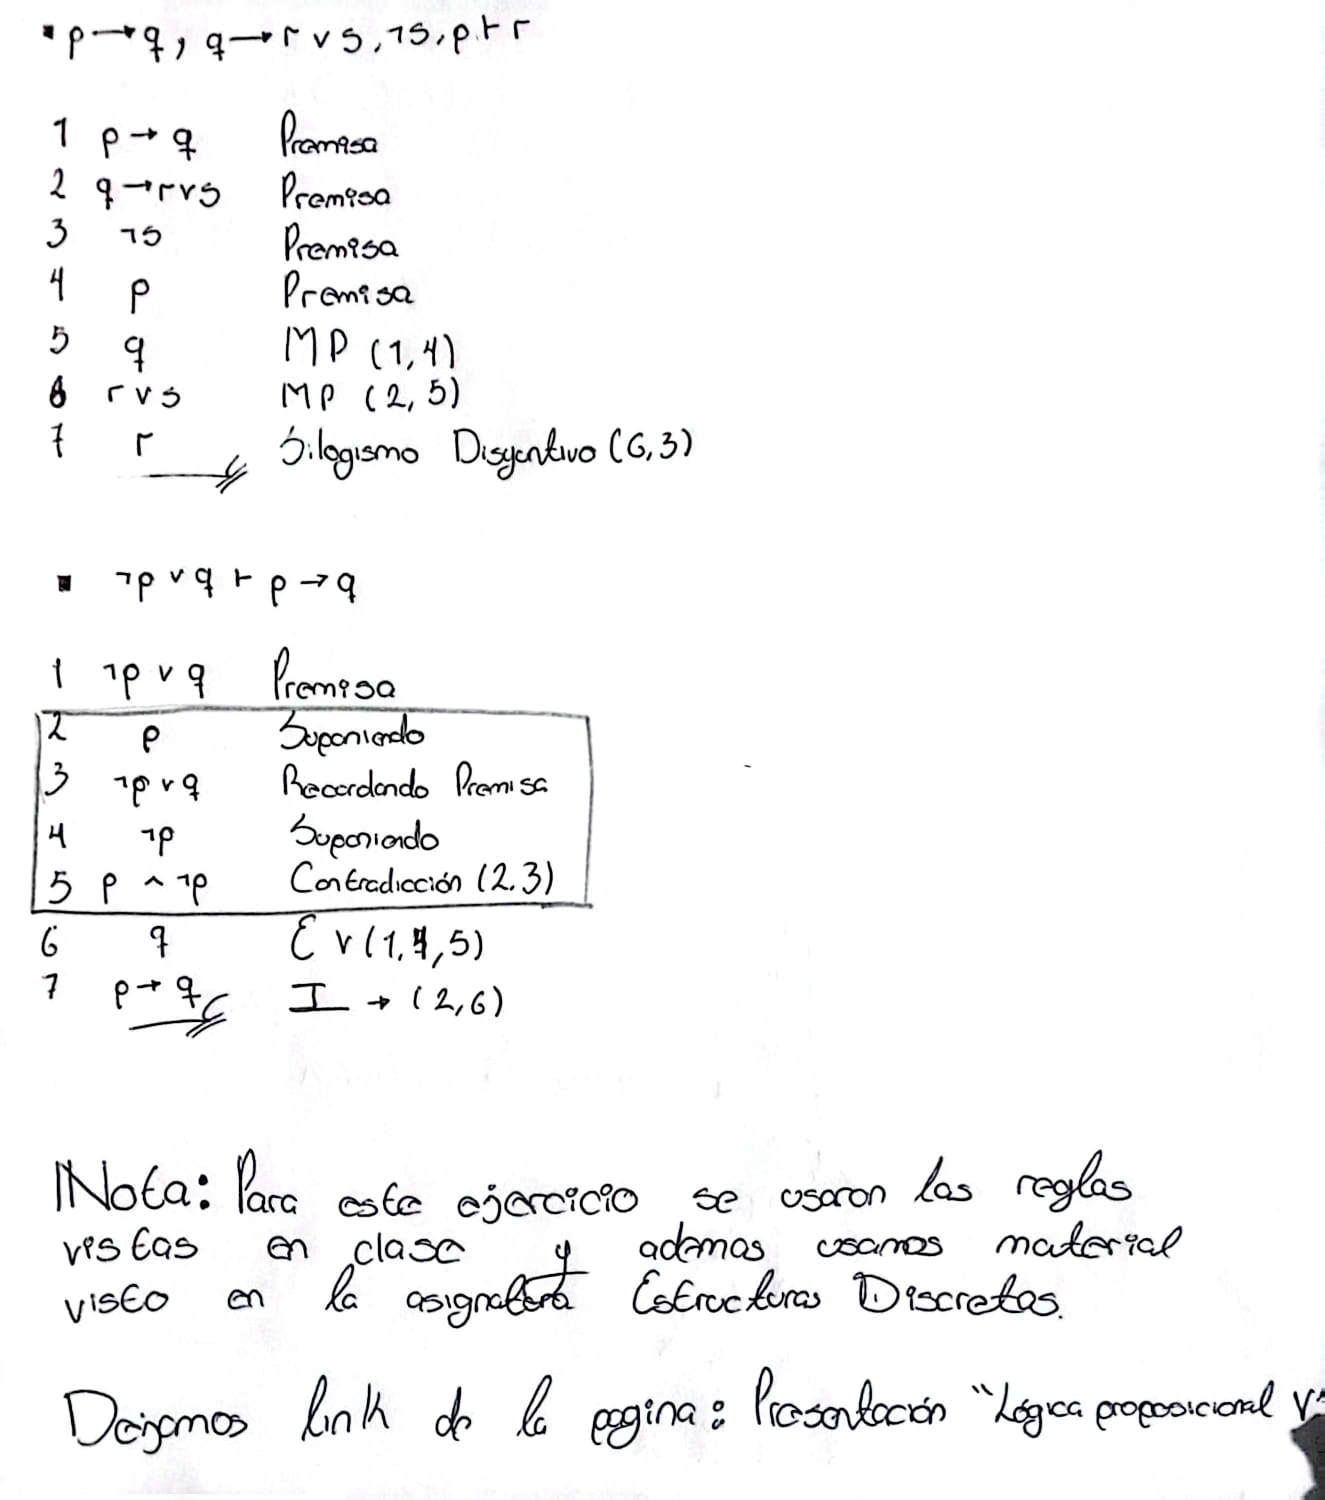 ▪ p → q, q → r v s, ¬s, p ⊢ r
1 p → q Premisa
2 q → r v s Premisa
3 ¬s Premisa
4 p Premisa
5 q MP (1,4)
6 r v s MP (2,5)
7 r Silogismo Disyuntivo (6,3)
▪ ¬p v q ⊢ p → q
1 ¬p v q Premisa
2 p Suponiendo
3 ¬p v q Recordando Premisa
4 ¬p Suponiendo
5 p ^ ¬p Contradicción (2.3)
6 q E v (1,4,5)
7 p → q I → (2,6)
Nota: Para este ejercicio se usaron las reglas
vistas en clase y ademas usamos material
visto en la asignatura Estructuras Discretas.
Dejamos link de la pagina: Presentación "Lógica proposicional